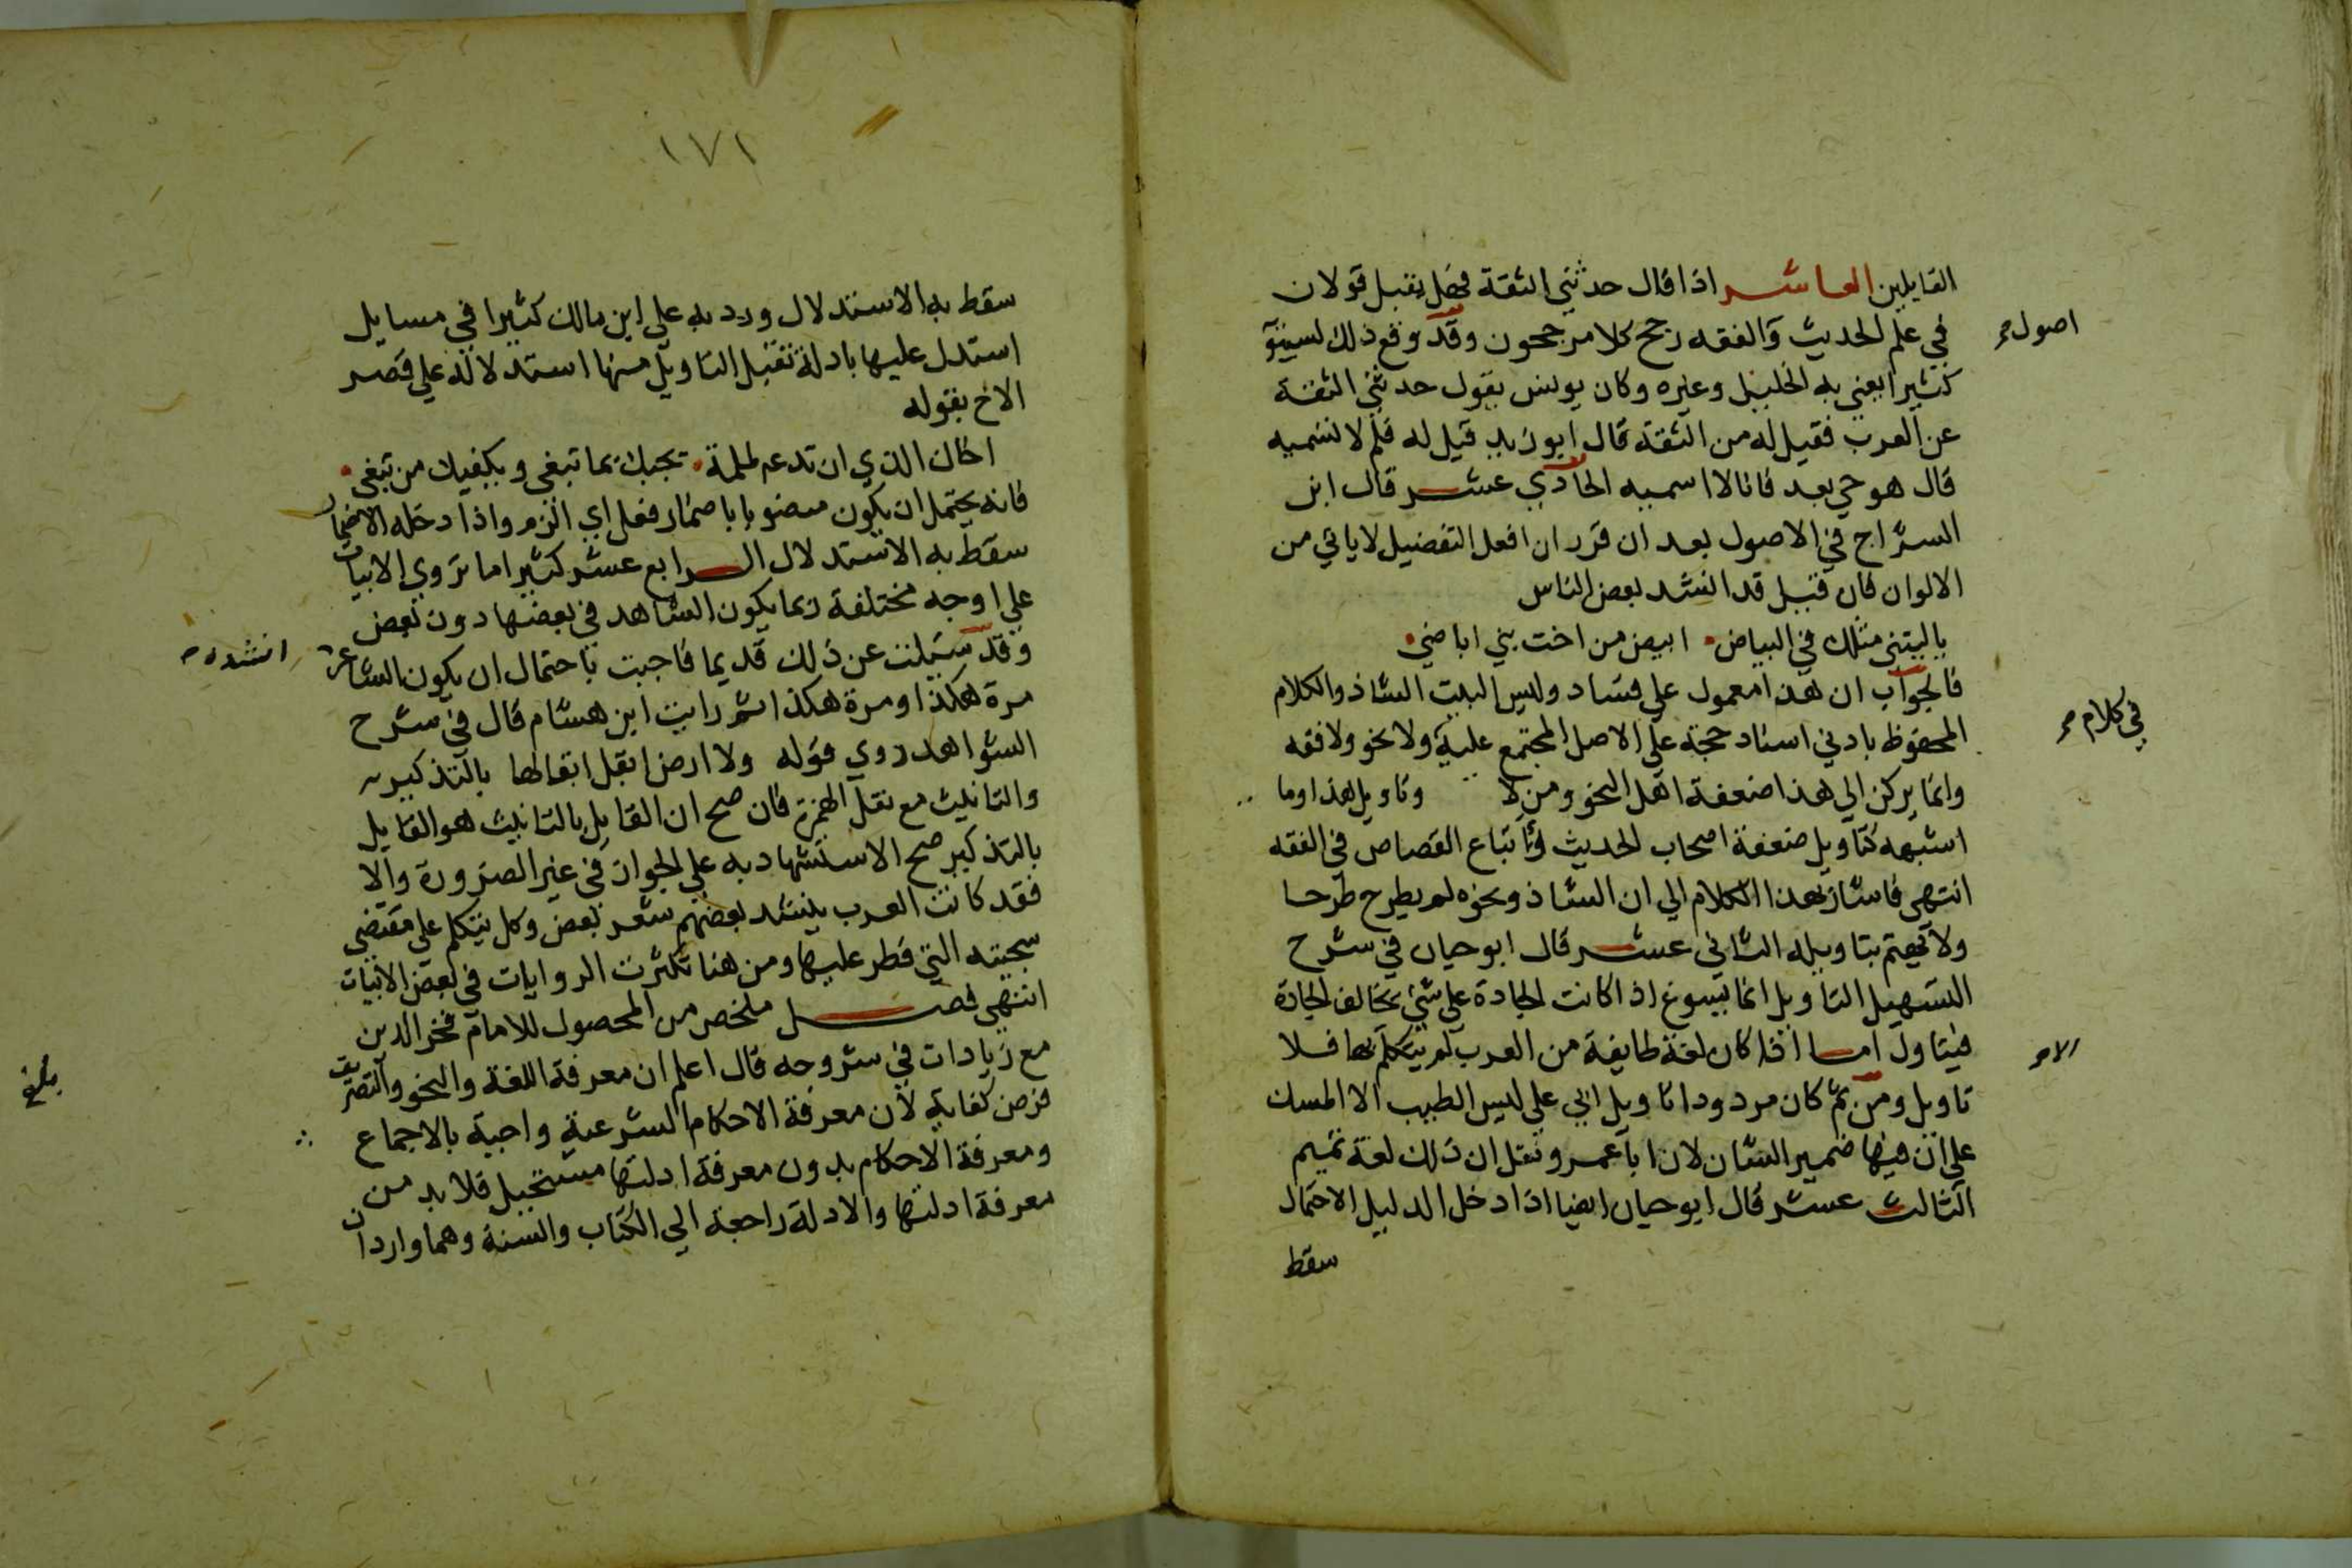 القايلين العاشر اذا قال حدثني الثقة فهل يقبل قولان
في علم الحديث والفقه رجح كلا مرجحون وقد وقع ذلك لسيبو
كثيرا يعني به الخليل وغيره وكان يونس يقول حدثني الثقة
عن العرب فقيل له من الثقة قال ابو زيد قيل له فلم لا تسميه
قال هو حي بعد فانا لا اسميه الحادي عشر قال ابن
السراج في الاصول بعد ان قرر ان افعل التفضيل لا ياتي من
الالوان فان قيل قد انشد بعض الناس
يا ليتني مثلك في البياض ابيض من اخت بني اباضي
فالجواب ان هذا معمول على فساد وليس البيت الشاذ والكلام
المحفوظ بادني اسناد حجة على الاصل المجتمع عليه ولا نحو ولا فقه
وانما يركن الي هذا ضعفة اهل النحو ومن لا وتاويل هذا وما
اشبهه كتاويل ضعفة اصحاب الحديث واتباع القصاص في الفقه
انتهى فاشار بهذا الكلام الي ان الشاذ ونحوه لم يطرح طرحا
ولا يهتم بتاويله الثاني عشر قال ابو حيان في شرح
التسهيل التاويل انما يسوغ اذا كانت الجادة على شئ يخالف الجادة
فيتاول اما اذا كان لغة طايفة من العرب لم يتكلم بها فلا
تاويل ومن ثم كان مردودا تاويل ابي علي ليس الطيب الا المسك
على ان فيها ضمير الشان لان ابا عمرو نقل ان ذلك لغة تميم
الثالث عشر قال ابو حيان ايضا اذا دخل الدليل الاحتمال
سقط
اصول
في كلام
الا
١٧١
سقط به الاستدلال ورد به على ابن مالك كثيرا في مسايل
استدل عليها بادلة تقبل التاويل منها استدلاله على قصر
الاخ بقوله
اخاك الذي ان تدعه لملمة يجبك بما تبغي ويكفيك من تبغي
فانه يحتمل ان يكون منصوبا باضمار فعل اي الزم واذا دخله الاحتمال
سقط به الاستدلال الرابع عشر كثيرا ما تروي الابيات
علي اوجه مختلفة ربما يكون الشاهد في بعضها دون بعض
وقد سيلت عن ذلك قديما فاجبت باحتمال ان يكون الشاعر
مرة هكذا ومرة هكذا ثم رايت ابن هشام قال في شرح
الشواهد روي قوله ولا ارض ابقل ابقالها بالتذكير
والتانيث مع نقل الهمزة فان صح ان القايل بالتانيث هو القايل
بالتذكير صح الاستشهاد به على الجواز في غير الضرورة والا
فقد كانت العرب ينشد بعضهم شعر بعض وكل يتكلم على مقتضي
سجيته التي فطر عليها ومن هنا تكثرت الروايات في بعض الابيات
انتهى فصل ملخص من المحصول للامام فخر الدين
مع زيادات في شروحه قال اعلم ان معرفة اللغة والنحو والتصريف
فرض كفاية لان معرفة الاحكام الشرعية واجبة بالاجماع
ومعرفة الاحكام بدون معرفة ادلتها مستحيل فلا بد من
معرفة ادلتها والادلة راجعة الي الكتاب والسنة وهما واردان
انشده
بلغ